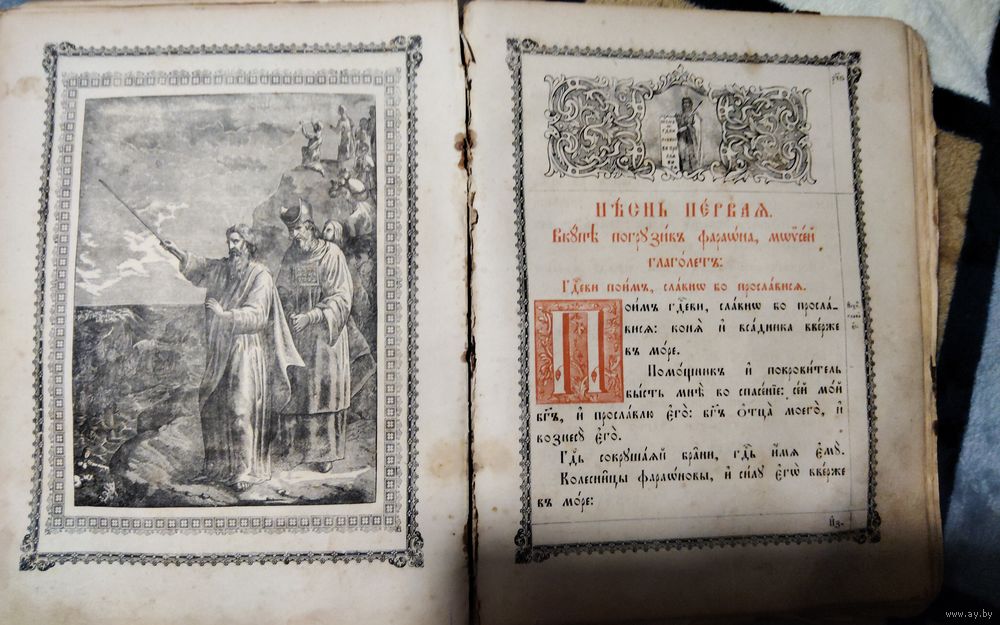 ПѢ́СНЬ ПЕ́РВАЯ.
Вкꙋ́пѣ погрꙋзи́въ фараѡ́на, мѡѷсе́й
глаго́летъ:
Гдⷭ҇еви пои́мъ, сла́внѡ бо просла́висѧ.
Пои́мъ гдⷭ҇еви, сла́внѡ бо просла́-
висѧ: конѧ̀ и҆ вса́дника вве́рже
въ мо́ре.
Помо́щникъ и҆ покрови́тель
бы́сть мнѣ̀ во спасе́нїе: се́й мо́й
бг҃ъ, и҆ просла́влю є҆го̀: бг҃ъ ѻ҆тца̀ моегѡ̀, и҆
вознесꙋ̀ є҆го̀.
Гдⷭ҇ь сокрꙋша́ѧй бра̑ни, гдⷭ҇ь и҆́мѧ є҆мꙋ̀.
Колесни̑цы фараѡ́новы, и҆ си́лꙋ є҆гѡ̀ вве́рже
въ мо́ре:
И҆з-
www.ay.by